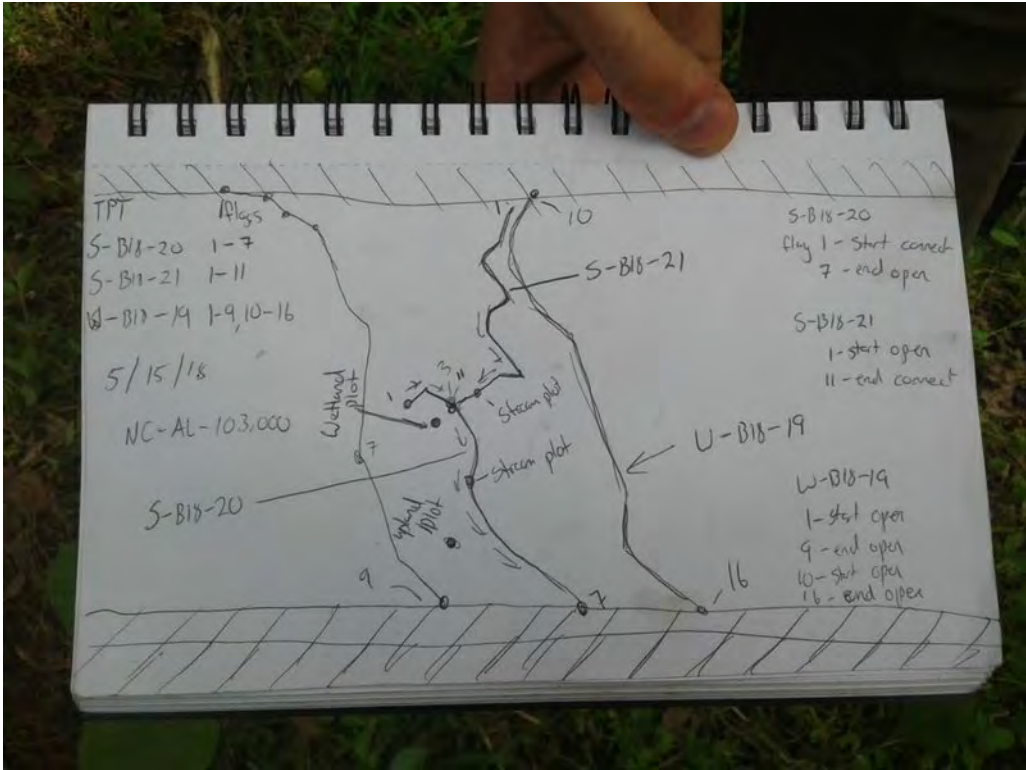 TPT flags
S-B18-20 1-7
S-B18-21 1-11
W-B18-19 1-9, 10-16
5/15/18
NC-AL-103,000
1
10
S-B18-21
Wetland plot
1
3
11
Stream plot
7
Stream plot
W-B18-19
S-B18-20
upland plot
9
7
16
S-B18-20
flag 1 - start connect
7 - end open
S-B18-21
1 - start open
11 - end connect
W-B18-19
1 - start open
9 - end open
10 - start open
16 - end open